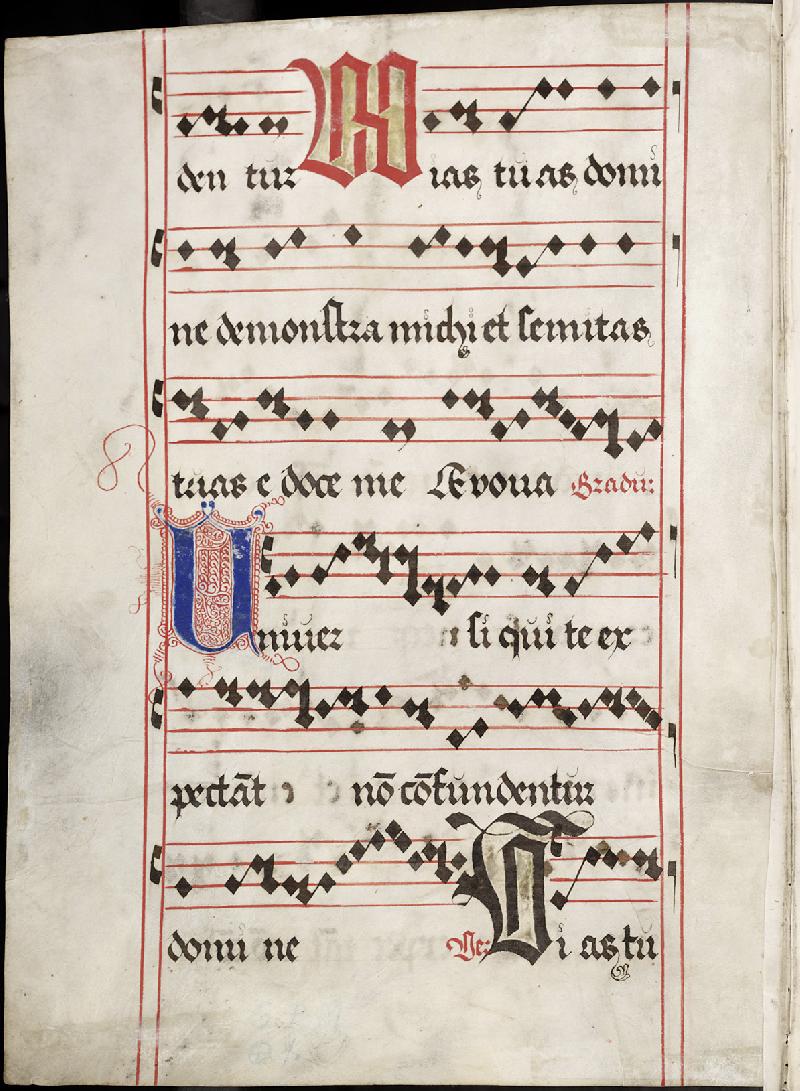 den tur Vias tuas domi
ne demonstra michi et semitas
tuas e doce me Æuoua Gradu:
Uniuer si qui te ex
pectāt nō cōfundentur
domi ne Ve: Vi as tu